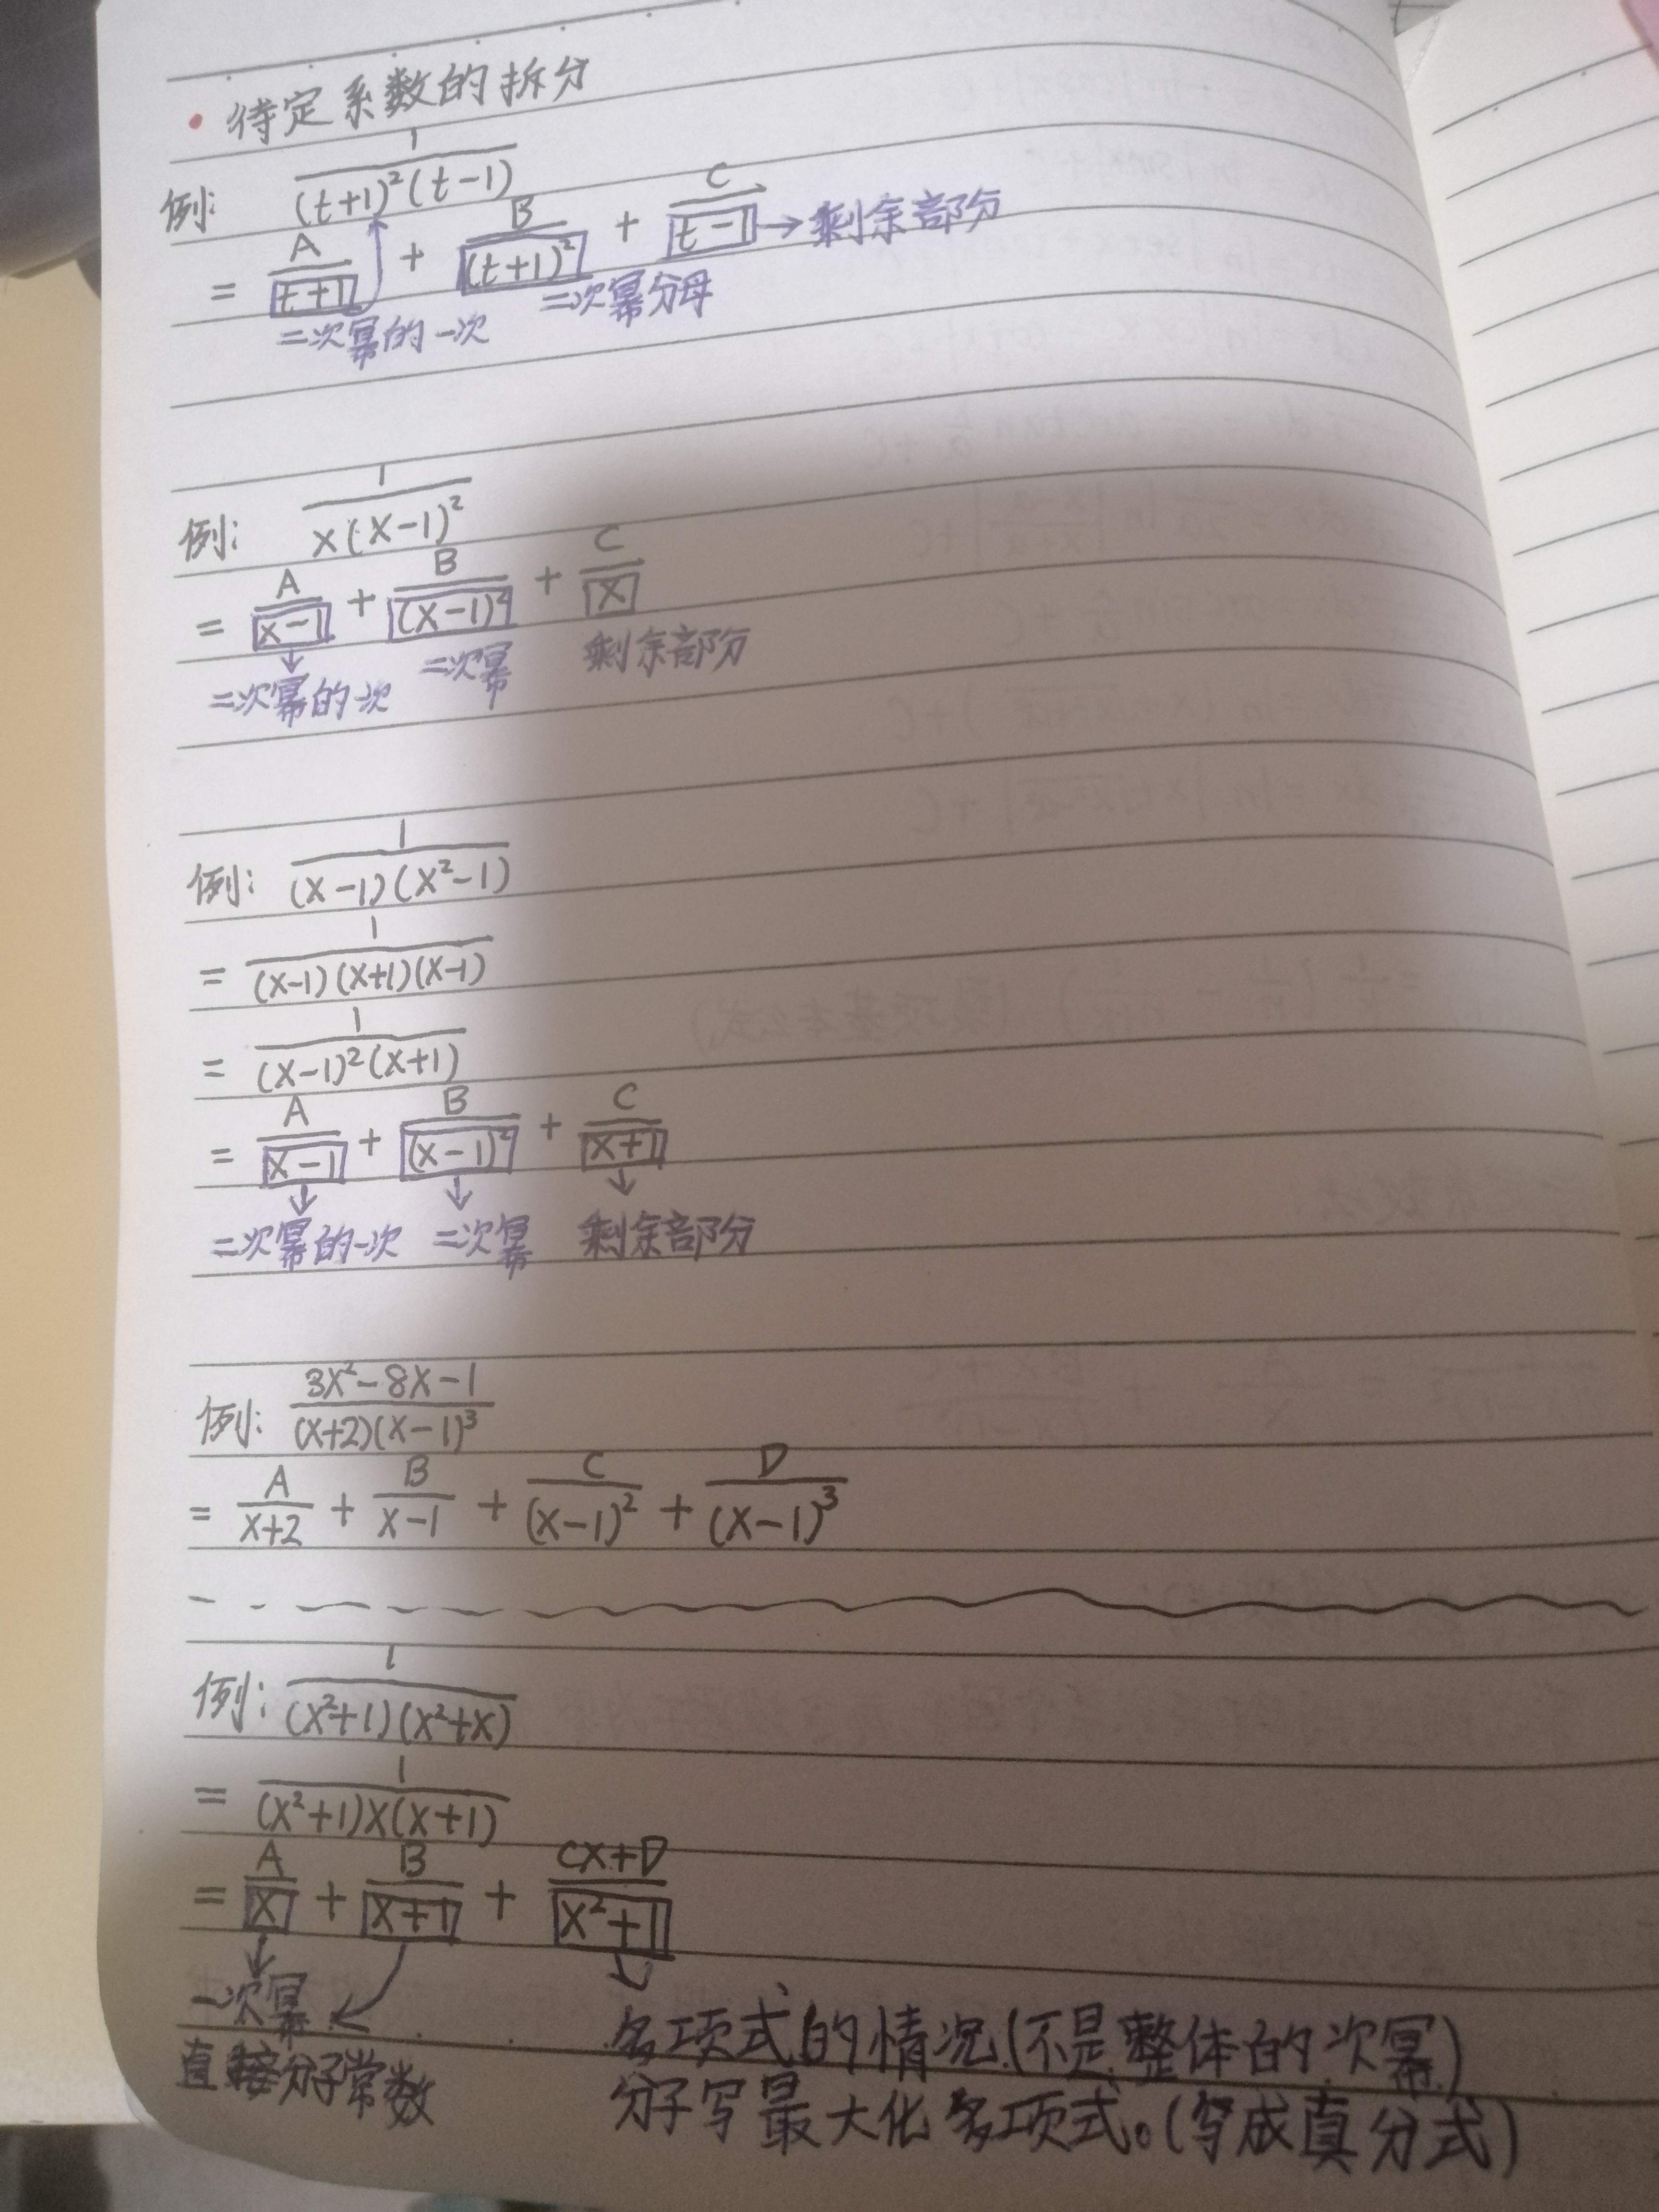 • 待定系数的拆分
例: 1/((t+1)²(t-1))
= A/(t+1) + B/((t+1)²) + C/(t-1) → 剩余部分
二次幂的一次 二次幂分母
例: 1/(x(x-1)²)
= A/(x-1) + B/((x-1)²) + C/x
二次幂的一次 二次幂 剩余部分
例: 1/((x-1)(x²-1))
= 1/((x-1)(x+1)(x-1))
= 1/((x-1)²(x+1))
= A/(x-1) + B/((x-1)²) + C/(x+1)
二次幂的一次 二次幂 剩余部分
例: (3x²-8x-1)/((x+2)(x-1)³)
= A/(x+2) + B/(x-1) + C/((x-1)²) + D/((x-1)³)
例: 1/((x²+1)(x²+x))
= 1/((x²+1)x(x+1))
= A/x + B/(x+1) + (Cx+D)/(x²+1)
一次幂
直接分子常数
多项式的情况(不是整体的次幂)
分子写最大化多项式。(写成真分式)